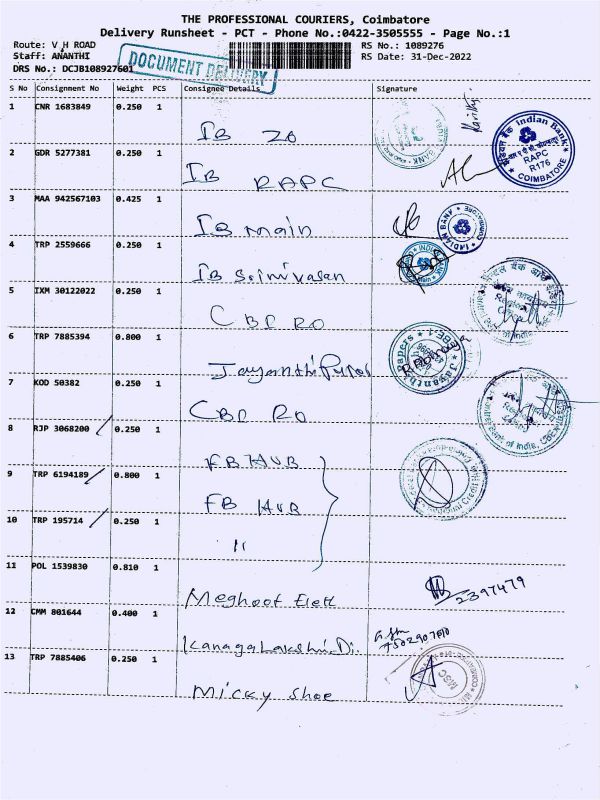 THE PROFESSIONAL COURIERS, Coimbatore
Delivery Runsheet - PCT - Phone No.:0422-3505555 - Page No.:1
Route: V H ROAD
RS No.: 1089276
Staff: ANANTHI
RS Date: 31-Dec-2022
DRS No.: DCJB108927601
DOCUMENT DELIVERY
S No Consignment No Weight PCS Consignee Details Signature
1 CNR 1683849 0.250 1
IB ZO
2 GDR 5277381 0.250 1
IB RAPC
Indian Bank
RAPC
R176
COIMBATORE
3 MAA 942567103 0.425 1
IB main
INDIAN BANK
4 TRP 2559666 0.250 1
IB Srinivasan
5 IXM 30122022 0.250 1
CBI RO
6 TRP 7885394 0.800 1
Jayanthi Papers
7 KOD 50382 0.250 1
CBI RO
8 RJP 3068200 0.250 1
FB HUB
9 TRP 6194189 0.800 1
FB HUB
10 TRP 195714 0.250 1
"
11 POL 1539830 0.810 1
Meghoot Elett
2397479
12 CMM 801644 0.400 1
Kanagalakshi Di.
13 TRP 7885406 0.250 1
Micky Shoe
MSC